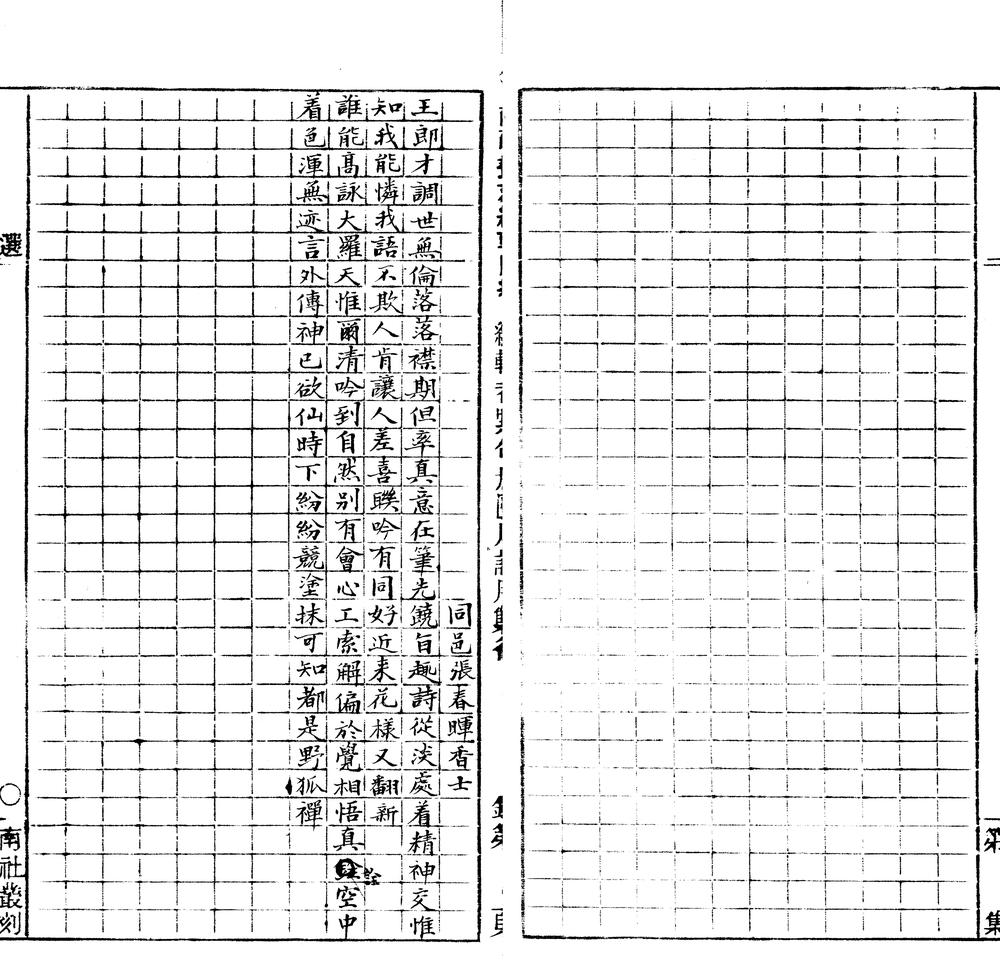 同邑張春暉香士
王郎才調世無倫落落襟期但率真意在筆先饒旨趣詩從淡處着精神交惟
知我能憐我語不欺人肯讓人差喜聯吟有同好近来花樣又翻新
誰能高詠大羅天惟爾清吟到自然别有會心工索解偏於覺相悟真詮空中
着色渾無迹言外傳神已欲仙時下紛紛競塗抹可知都是野狐禪
選
○南社叢刻
集